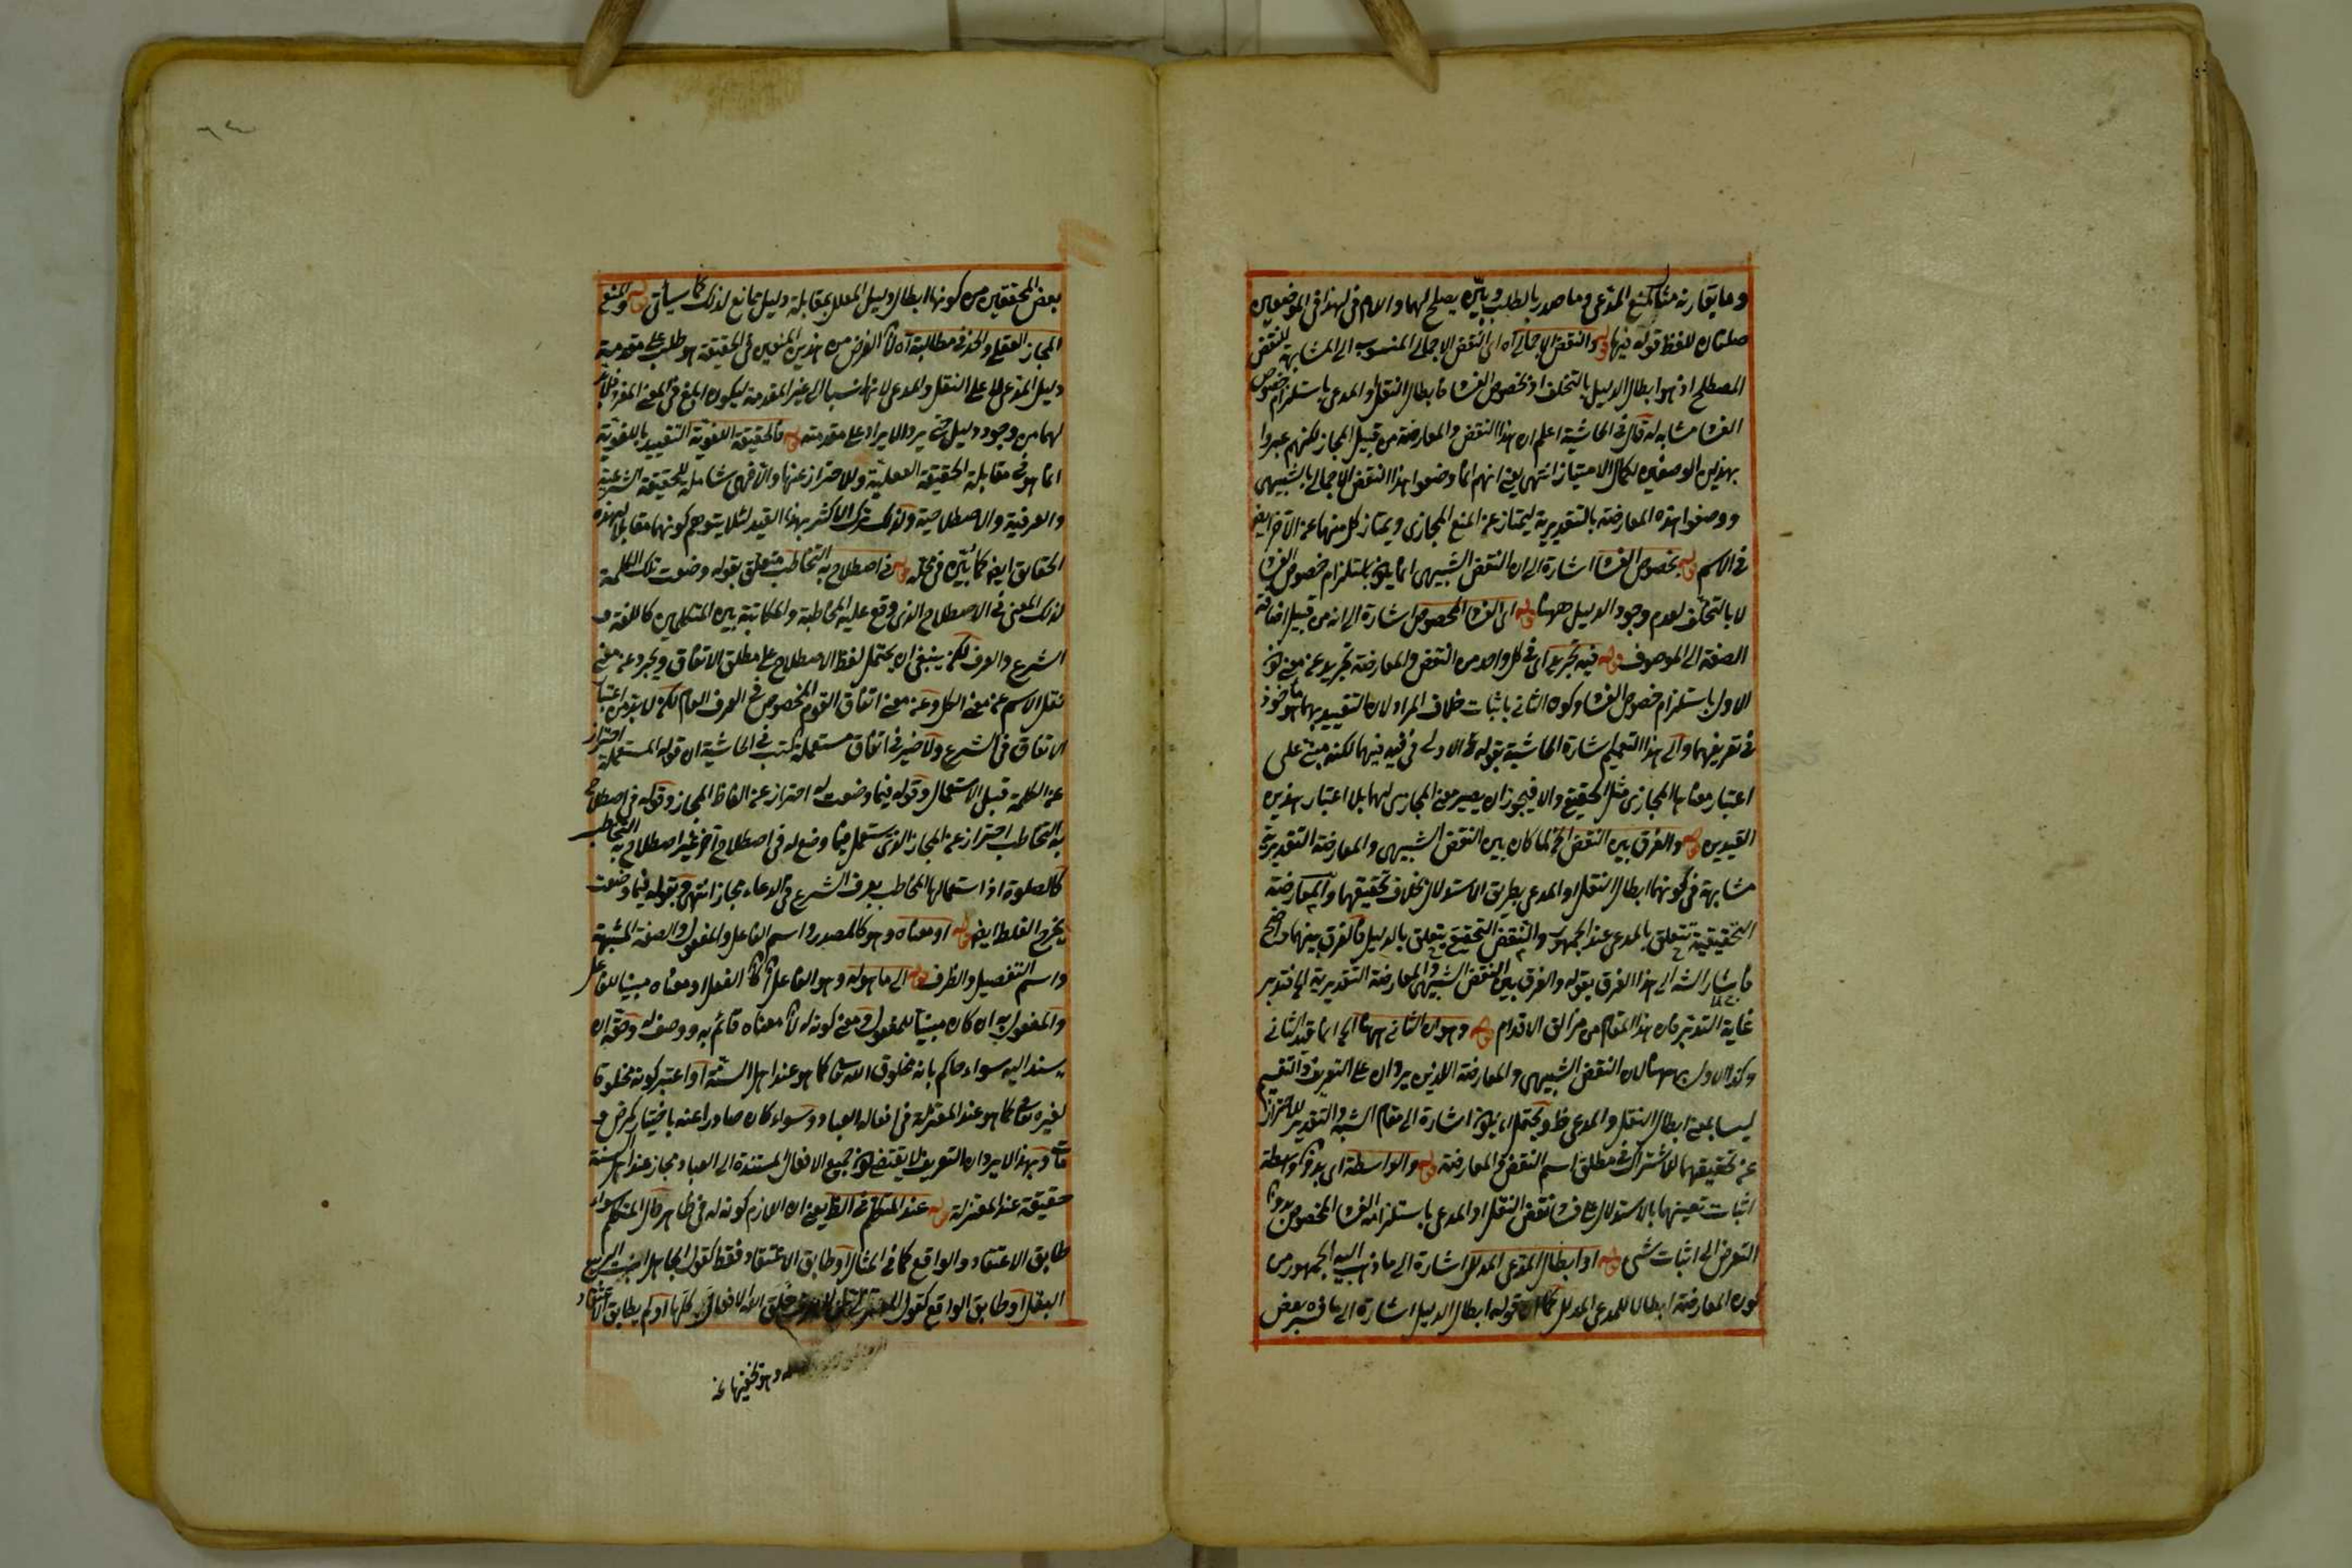 وما يقارنه مثالا لمنع المدعى وما صدر بالطلب وبأيّن يصلح لهما والام فى لهذا فى الموضعين
صلتان للفظ قوله فيها قوله والنقض الاجمالى اه اى النقض الاجمالى المنسوب الى المشابهة للنقض
المصطلح اذ هو ابطال الدليل بالتخلف او بخصوص الفساد فابطال النقل او المدعى باستلزام خصوص
الفساد مشابه له قال فى الحاشية اعلم ان هذا النقض والمعارضة من قبيل المجاز لكنهم عبروا
بهذين الوصفين لكمال الامتياز انتهى يعنى انهم انما وضعوا هذا النقض الاجمالى بالشبيهى
ووصفوا هذه المعارضة بالتقديرية ليمتاز عن المنع المجازى ويمتاز كل منهما عن الآخر ايضا
فى الاسم قوله بخصوص الفساد اشارة الى ان النقض الشبيهى انما يكون باستلزام خصوص الفساد
لا بالتخلف لعدم وجود الدليل ههنا قوله اى الفساد المخصوص اشارة الى انه من قبيل اضافة
الصفة الى الموصوف قوله فيه تجريد اى فى كل واحد من النقض والمعارضة تجريد عن معنى كون
الاول باستلزام خصوص الفساد وكون الثانى باثبات خلاف المراد لان التقييد بهما مأخوذ
فى تعريفهما والى هذا التعميم اشارة الحاشية بقوله الاولى فى قيد فيهما لكنه مبنى على
اعتبار معناها المجازى مثل الحقيقى والا فيجوز ان يصير معنى المجازى لهما بلا اعتبار هذين
القيدين قوله والفرق بين النقض الخ لما كان بين النقض الشبيهى والمعارضة التقديرية
مشابهة فى كونهما ابطال النقل او المدعى بطريق الاستدلال بخلاف تحقيقهما والمعارضة
التحقيقية تتعلق بالمدعى عند الجمهور والنقض التحقيقى يتعلق بالدليل فالفرق بينهما واضح
فاشار الشه الى هذا الفرق بقوله والفرق بين النقض الشبيهى والمعارضة التقديرية الخ فتدبر
غاية التدبر فان هذا المقام من مزالق الاقدام قوله وهو ان الثانى ههنا الخ انما قيد الثانى
وكذا الاول بههنا لان النقض الشبيهى والمعارضة اللذين يردان على التعريف والتقسيم
ليسا بمعنى ابطال النقل والمدعى ظ ويحتمل ان يكون اشارة الى مقام الشبه والتقدير للاحتراز
عن تحقيقهما للاشتراك فى مطلق اسم النقض والمعارضة قوله والواسطة اى بدون واسطة
اثبات تعينهما بالاستدلال على فساد نقض النقل او المدعى باستلزامه الفساد المخصوص بدون
التعرض الى اثبات شئ قوله او ابطال المدعى المدلل اشارة الى ما ذهب اليه الجمهور من
كون المعارضة ابطالا للمدعى المدلل كما ان قوله ابطال الدليل اشارة الى ما فسره بعض
بعض المحققين من كونها ابطال دليل المعلل بمقابلة دليل ممانع لذلك كما سيأتى قوله والمنع
المجاز العقلى والحذفى مطالبة اه لان الغرض من هذين المنعين فى الحقيقة هو طلب على مقدمة
دليل المدعى لا على النقل والمدعى لانهما نسبا الى غير المقدمة ليكون ابلغ فى المعنى المقصود فلا بد
لهما من وجود دليل حتى يرد الايراد على مقدمته قوله فالحقيقة اللغوية التقييد باللغوية
انما هو فى مقابلة الحقيقة العقلية وللاحتراز عنها والا فهى شاملة للحقيقة الشرعية
والعرفية والاصطلاحية ولذلك ترك الاكثر بهذا القيد لئلا يتوهم كونهما مقابلا لهذه
الحقايق ايضا كما بيّن فى محله قوله فى اصطلاح به التخاطب متعلق بقوله وضعت تلك الكلمة
لذلك المعنى فى الاصطلاح الذى وقع عليه المخاطبة والمكاتبة بين المتكلمين كاللغة و
الشرع والعرف لكن ينبغى ان يحتمل لفظ الاصطلاح على مطلق الاتفاق ويجرد عن معنى
نقل الاسم عن معنى الكل وعن معنى اتفاق القوم المخصوص فى العرف العام لكن لا بد من اعتبار
الاتفاق فى الشرع ولا ضير فى اتفاق مستعملة كتب فى الحاشية ان قوله المستعملة احتراز
عن الكلمة قبل الاستعمال وقوله فيما وضعت له احتراز عن الفاظ المجاز وقوله فى اصطلاح
به التخاطب احتراز عن المجاز الذى يستعمل فيما وضع له فى اصطلاح آخر غير اصطلاح به التخاطب
كالصلوة اذا استعمالها المخاطب بعرف الشرع فى الدعاء مجاز انتهى وبقوله فيما وضعت
يخرج الغلط ايضا قوله او معناه وهو كالمصدر واسم الفاعل والمفعول والصفة المشبهة
واسم التفضيل والظرف قوله الى ما هو له وهو الفاعل ان كان الفعل او معناه مبنيا للفاعل
والمفعول به ان كان مبنيا للمفعول ومعنى كونه له ان معناه قائم به ووصف له وحقه ان
يسند اليه سواء حاكم بانه مخلوق الله تعالى كما هو عند اهل السنة او اعتبر كونه مخلوقا
لغيره تعالى كما هو عند المعتزلة فى افعال العباد وسواء كان صادرا عنه باختيار كمرض و
مات وبهذا لا يرد ان التعريف لا يقتضى كون جميع الافعال المستندة الى العباد مجاز عند اهل السنة
حقيقة عند المعتزلة قوله عند المتكلم فى الظ يعنى ان اللازم كونه له فى ظاهر حال المتكلم سواء
طابق الاعتقاد والواقع كما فى المثال او طابق الاعتقاد فقط كقول الجاهل انبت الربيع
البقل او طابق الواقع كقول المعتزلى خلق الله الافعال كلها او لم يطابق الاعتقاد
وهو يخفيها عنه